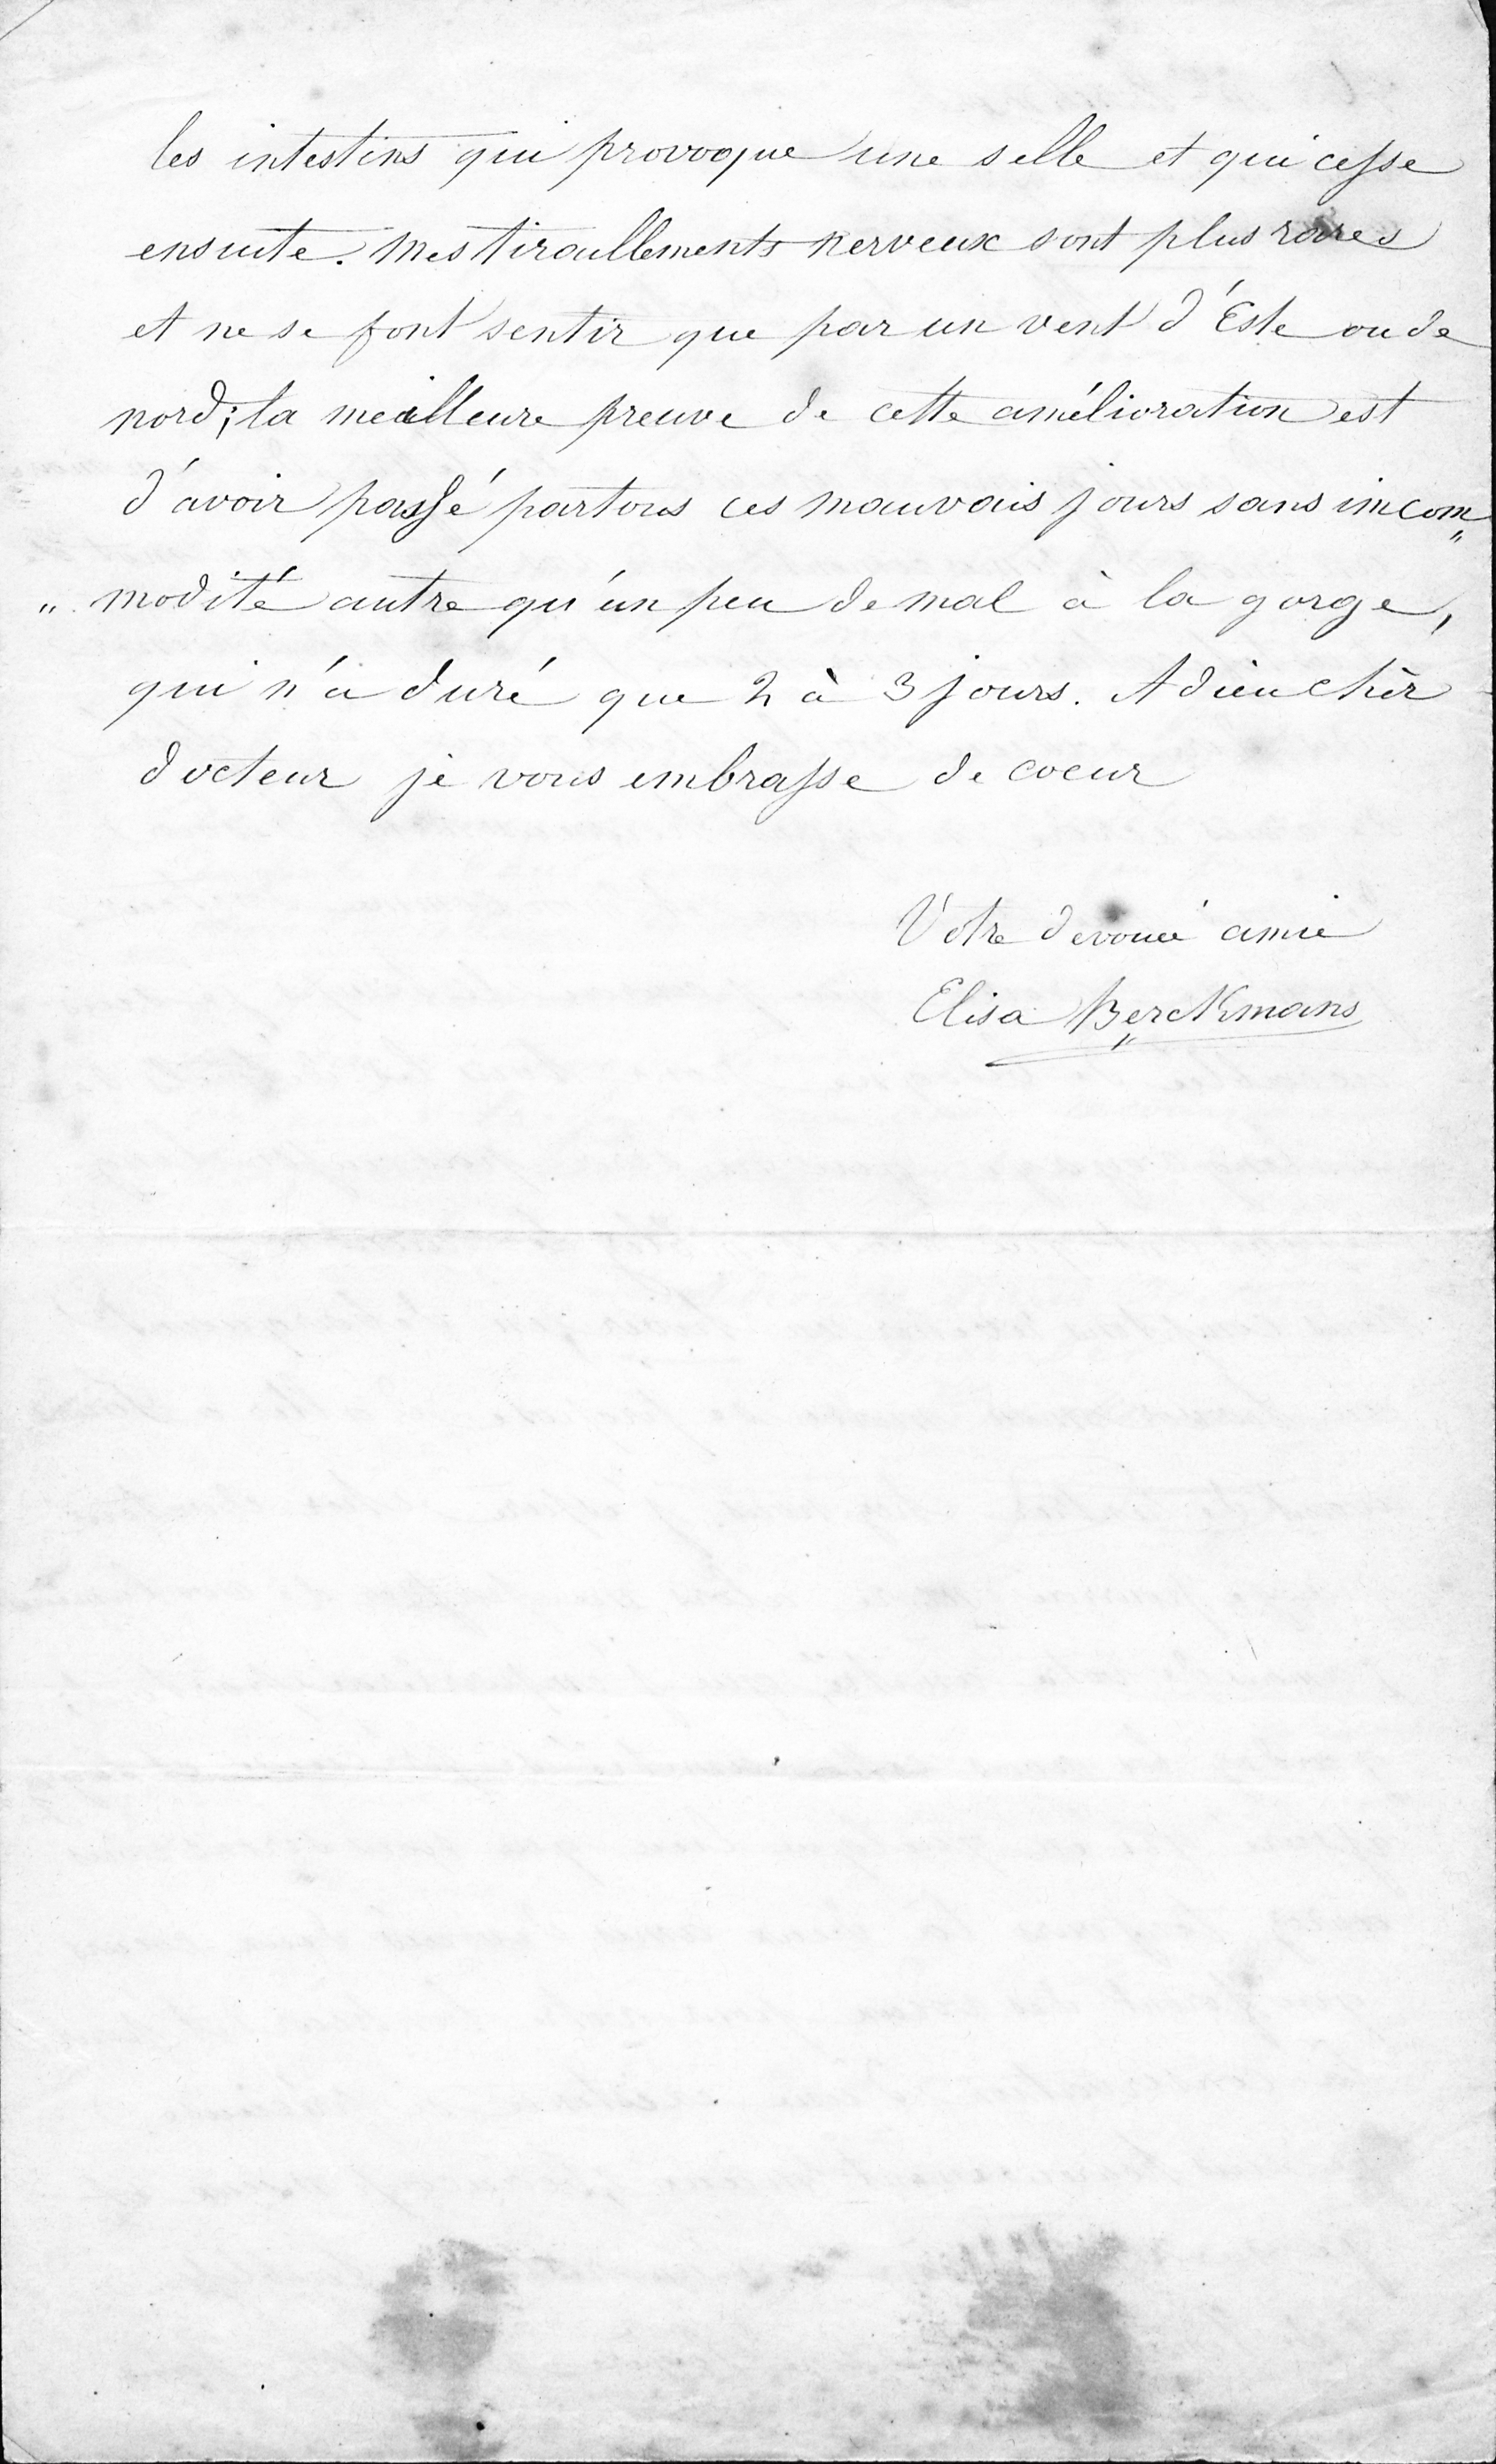 les intestins qui provoque une selle et qui cesse
ensuite. Mes tiraillements nerveux sont plus rares
et ne se font sentir que par un vent d'Este ou de
nord; la meilleure preuve de cette amélioration est
d'avoir passé par tous ces mauvais jours sans incom„
„modité autre qu'un peu de mal à la gorge,
qui n'a duré que 2 à 3 jours. Adieu chèr
docteur je vous embrasse de coeur
Votre devoué amie
Elisa Berckmans